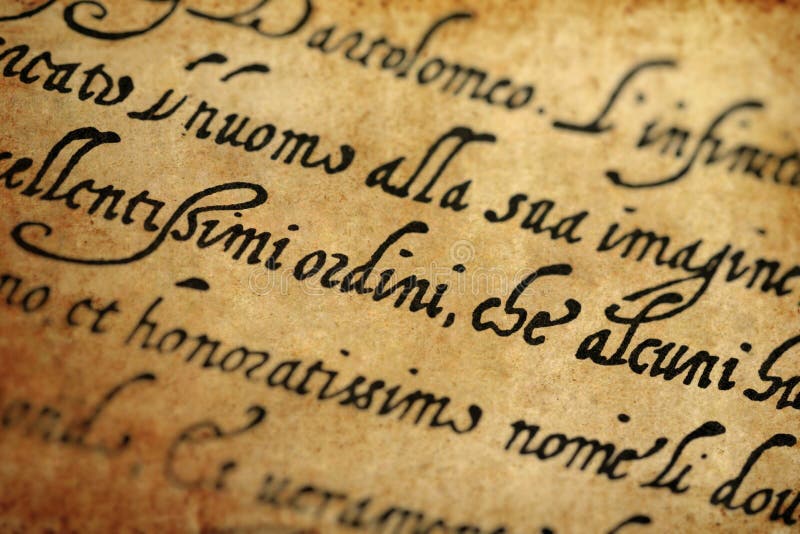 Bartolomeo. L'infinita
rcato l'huomo alla sua imagine,
cellentissimi ordini, che alcuni hu
no, et honoratissimo nome li dou
ando. Et veramente